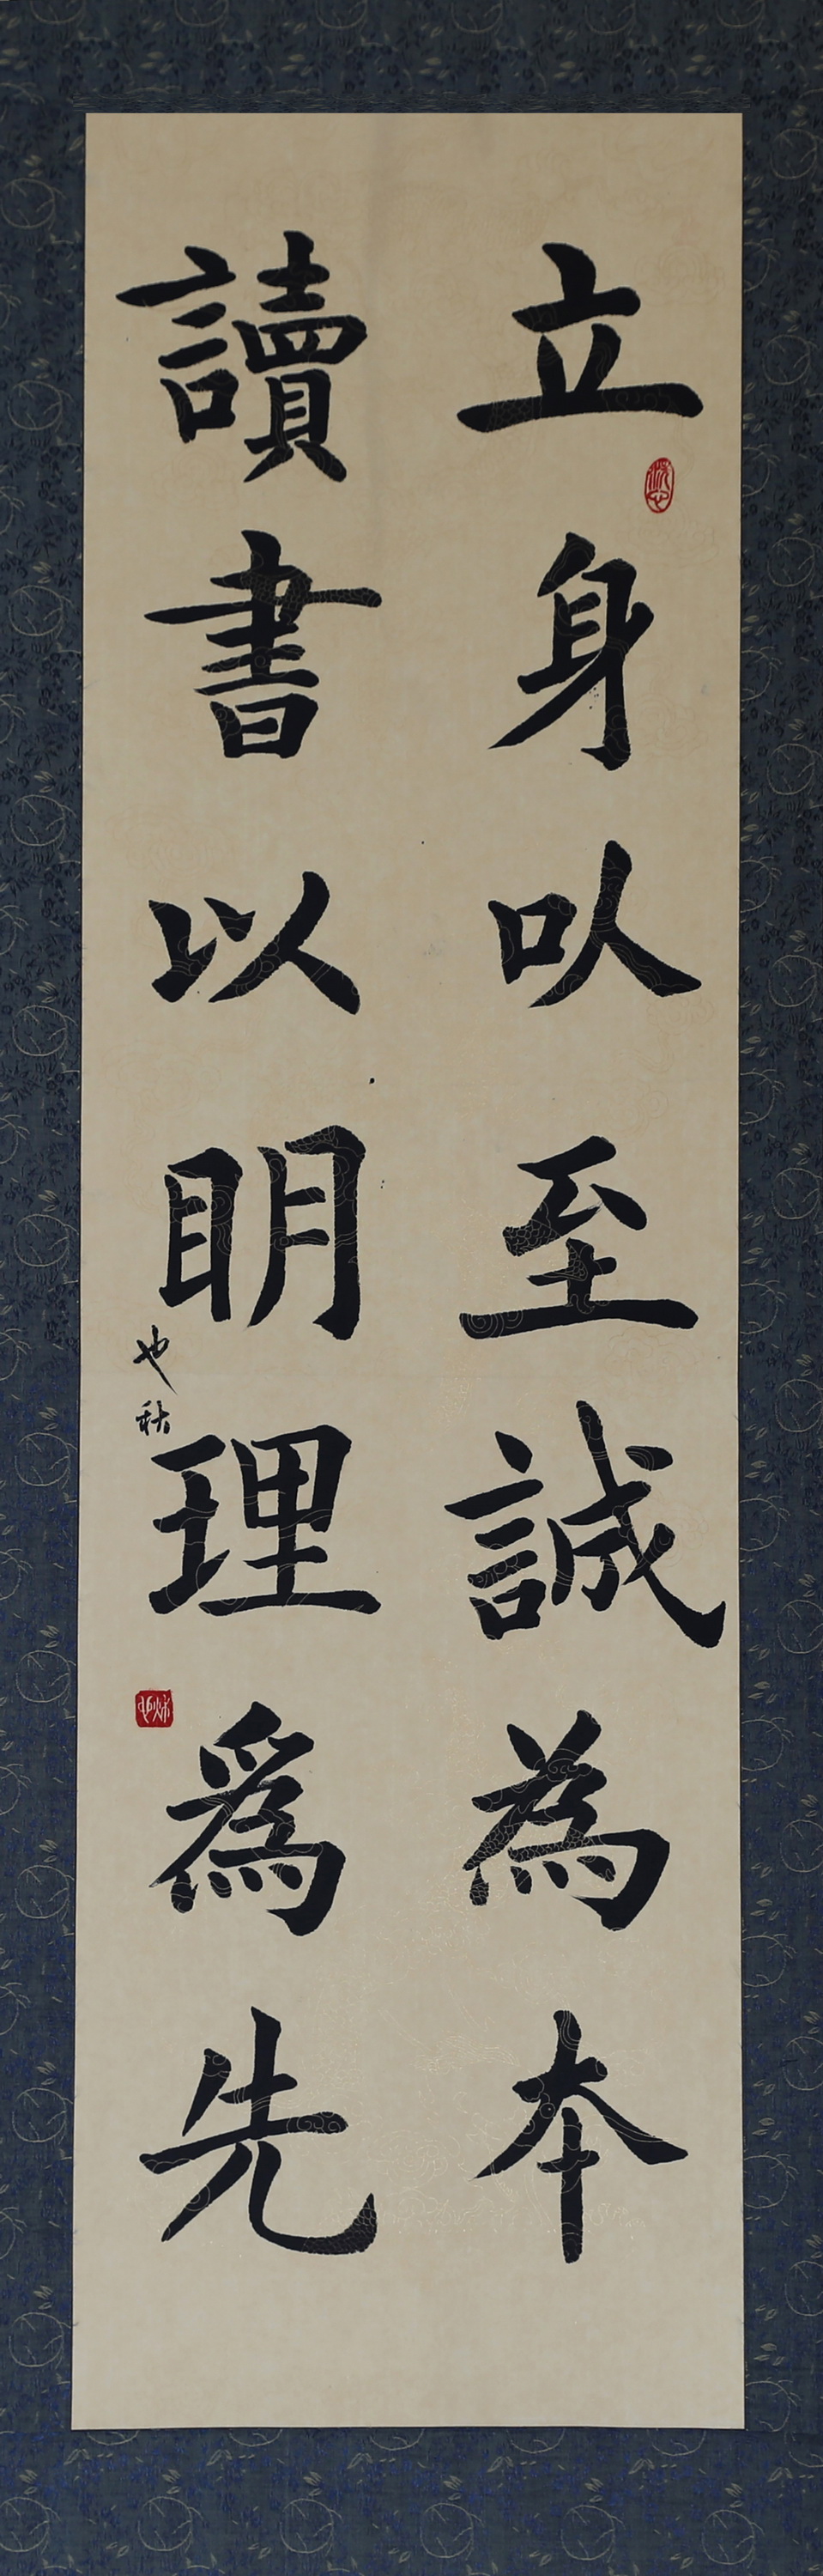 立身以至誠為本
讀書以明理為先
也秋